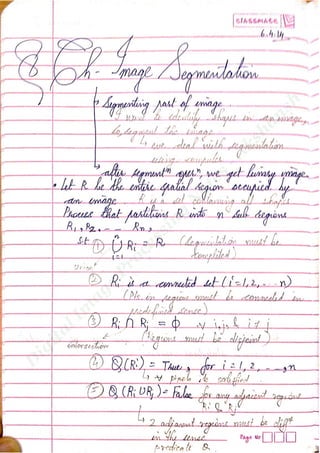 classmate
6.4.14
8 Ch- Image Segmentation
↳ Segmenting part of image.
I want to identify shapes in an image,
to segment the image
↳ we deal with segmentation
using computer
↳ after segmentⁿ operⁿ, we get binary image
• Let R be the entire spatial region occupied by
an image. R is a set containing all shapes
Process that partitions R into n sub regions
R₁, R₂, - - - Rₙ,
st ① ⋃ᵢ₌₁ⁿ Rᵢ = R (Segmentation must be
completed)
② Rᵢ is a connected set (i=1,2, . . n)
(Pts. in regions must be connected in
predefined sense)
③ Rᵢ ∩ Rⱼ = ϕ ∀ i, j, & i ≠ j
intersection (regions must be disjoint)
④ Q(Rᵢ) = True, for i = 1, 2, - - -, n
↳ ∀ pixels is satisfied
⑤ Q(Rᵢ ∪ Rⱼ) = False for any adjacent regions
Rᵢ & Rⱼ
↳ 2 adjacent regions must be diffⁿ
in the sense
predicate Q.
Page No